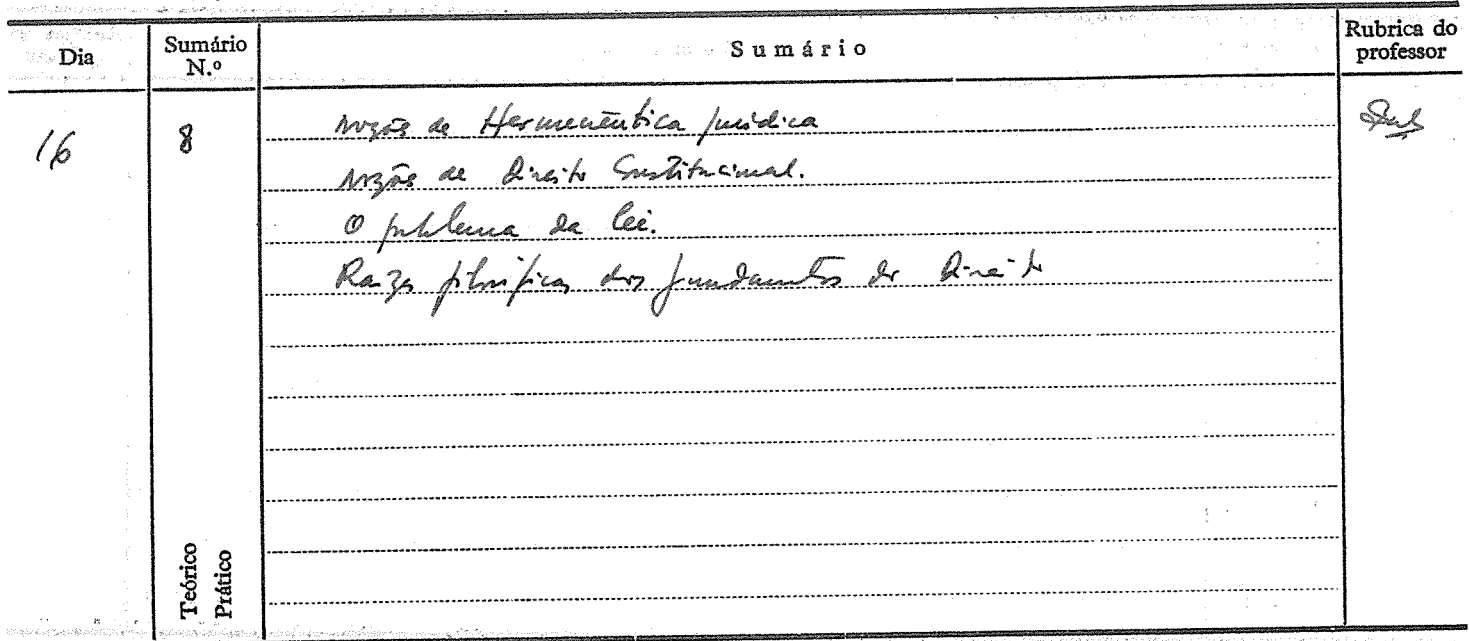 Dia
Sumário N.º
Sumário
Rubrica do professor
16
8
Noções de Hermenêutica jurídica
Noções de Direito Constitucional.
O problema da lei.
Raizes filosóficas dos fundamentos do Direito
Teórico
Prático